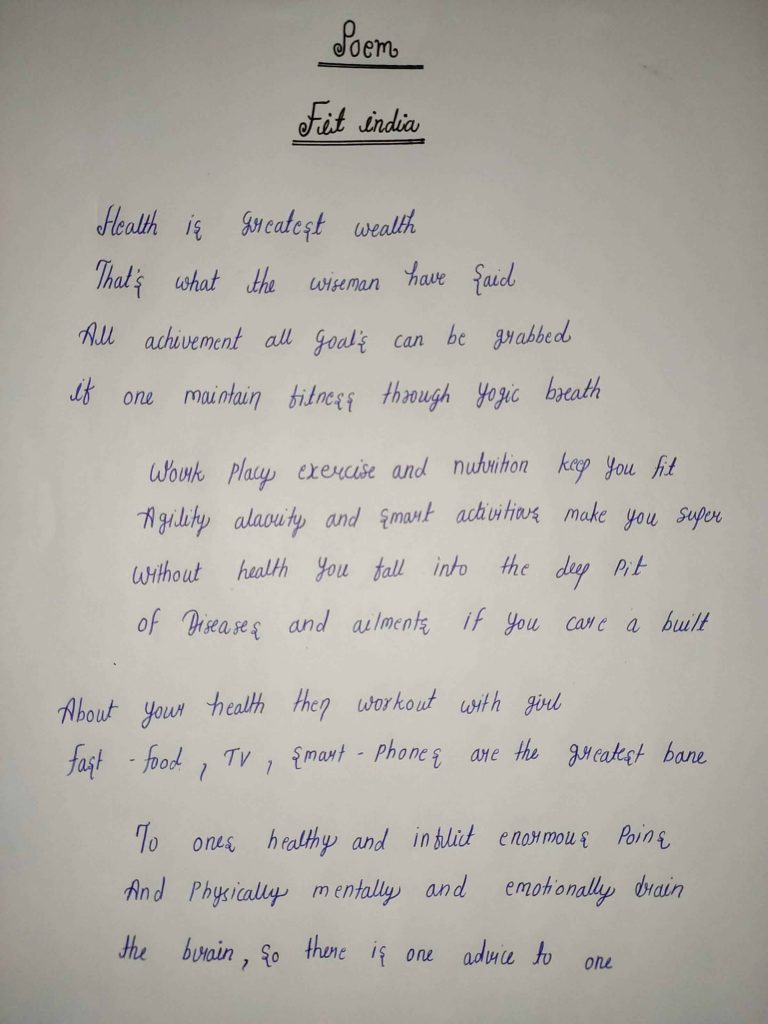 Poem
Fit india
Health is greatest wealth
That's what the wiseman have said
All achivement all goal's can be grabbed
if one maintain fitness through yogic breath
Work Placy exercise and nutrition keep you fit
Agility alacrity and smart activities make you super
Without health you fall into the deep Pit
of Diseases and ailments if you care a built
About your health then workout with girl
fast - food, TV, smart - Phones are the greatest bane
To ones healthy and inflict enormous Poins
And Physically mentally and emotionally drain
the burain, so there is one advice to one